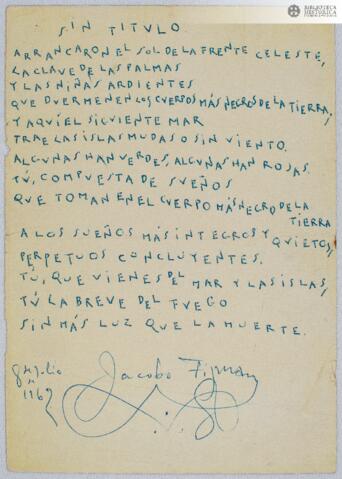 BIBLIOTECA
HISTÓRICA
SIN TITULO
ARRANCARON EL SOL DE LA FRENTE CELESTE,
LA CLAVE DE LAS PALMAS
Y LAS NIÑAS ARDIENTES
QUE DUERMEN EN LOS CUERPOS MÁS NEGROS DE LA TIERRA;
Y AQUÍ EL SIGUIENTE MAR
TRAE LAS ISLAS MUDAS O SIN VIENTO.
ALGUNAS HAN VERDES, ALGUNAS HAN ROJAS.
TÚ, COMPUESTA DE SUEÑOS
QUE TOMAN EN EL CUERPO MÁS NEGRO DE LA
TIERRA
A LOS SUEÑOS MÁS INTEGROS Y QUIETOS,
PERPETUOS CONCLUYENTES.
TÚ, QUE VIENES DEL MAR Y LAS ISLAS,
TÚ LA BREVE DEL FUEGO
SIN MÁS LUZ QUE LA MUERTE.
Jacobo Fijman
Julio